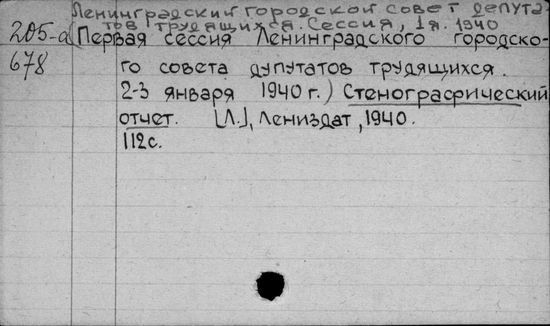 Ленинградский городской совет депута-
тов трудящихся. Сессия, 1я. 1940
205-а (Первая сессия Ленинградского городско-
678 го совета дупутатов трудящихся.
2-3 января 1940 г.) Стенографический
отчет. [Л.], Лениздат, 1940.
112с.